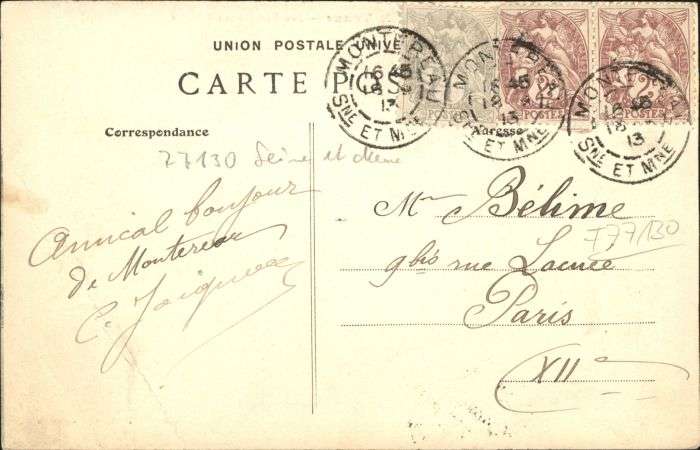 UNION POSTALE UNIVE
CARTE POS
MONTEREAU
16 45
13
SNE ET MNE
MONTEREAU
16 45
13
SNE ET MNE
MONTEREAU
16 45
13
SNE ET MNE
2
POSTES
2
POSTES
Correspondance
Adresse
77130 Seine et Marne
Amical bonjour
de Montereau
C.
Mr Bélime
F77130
9 bis rue Lacuée
Paris
XIIe